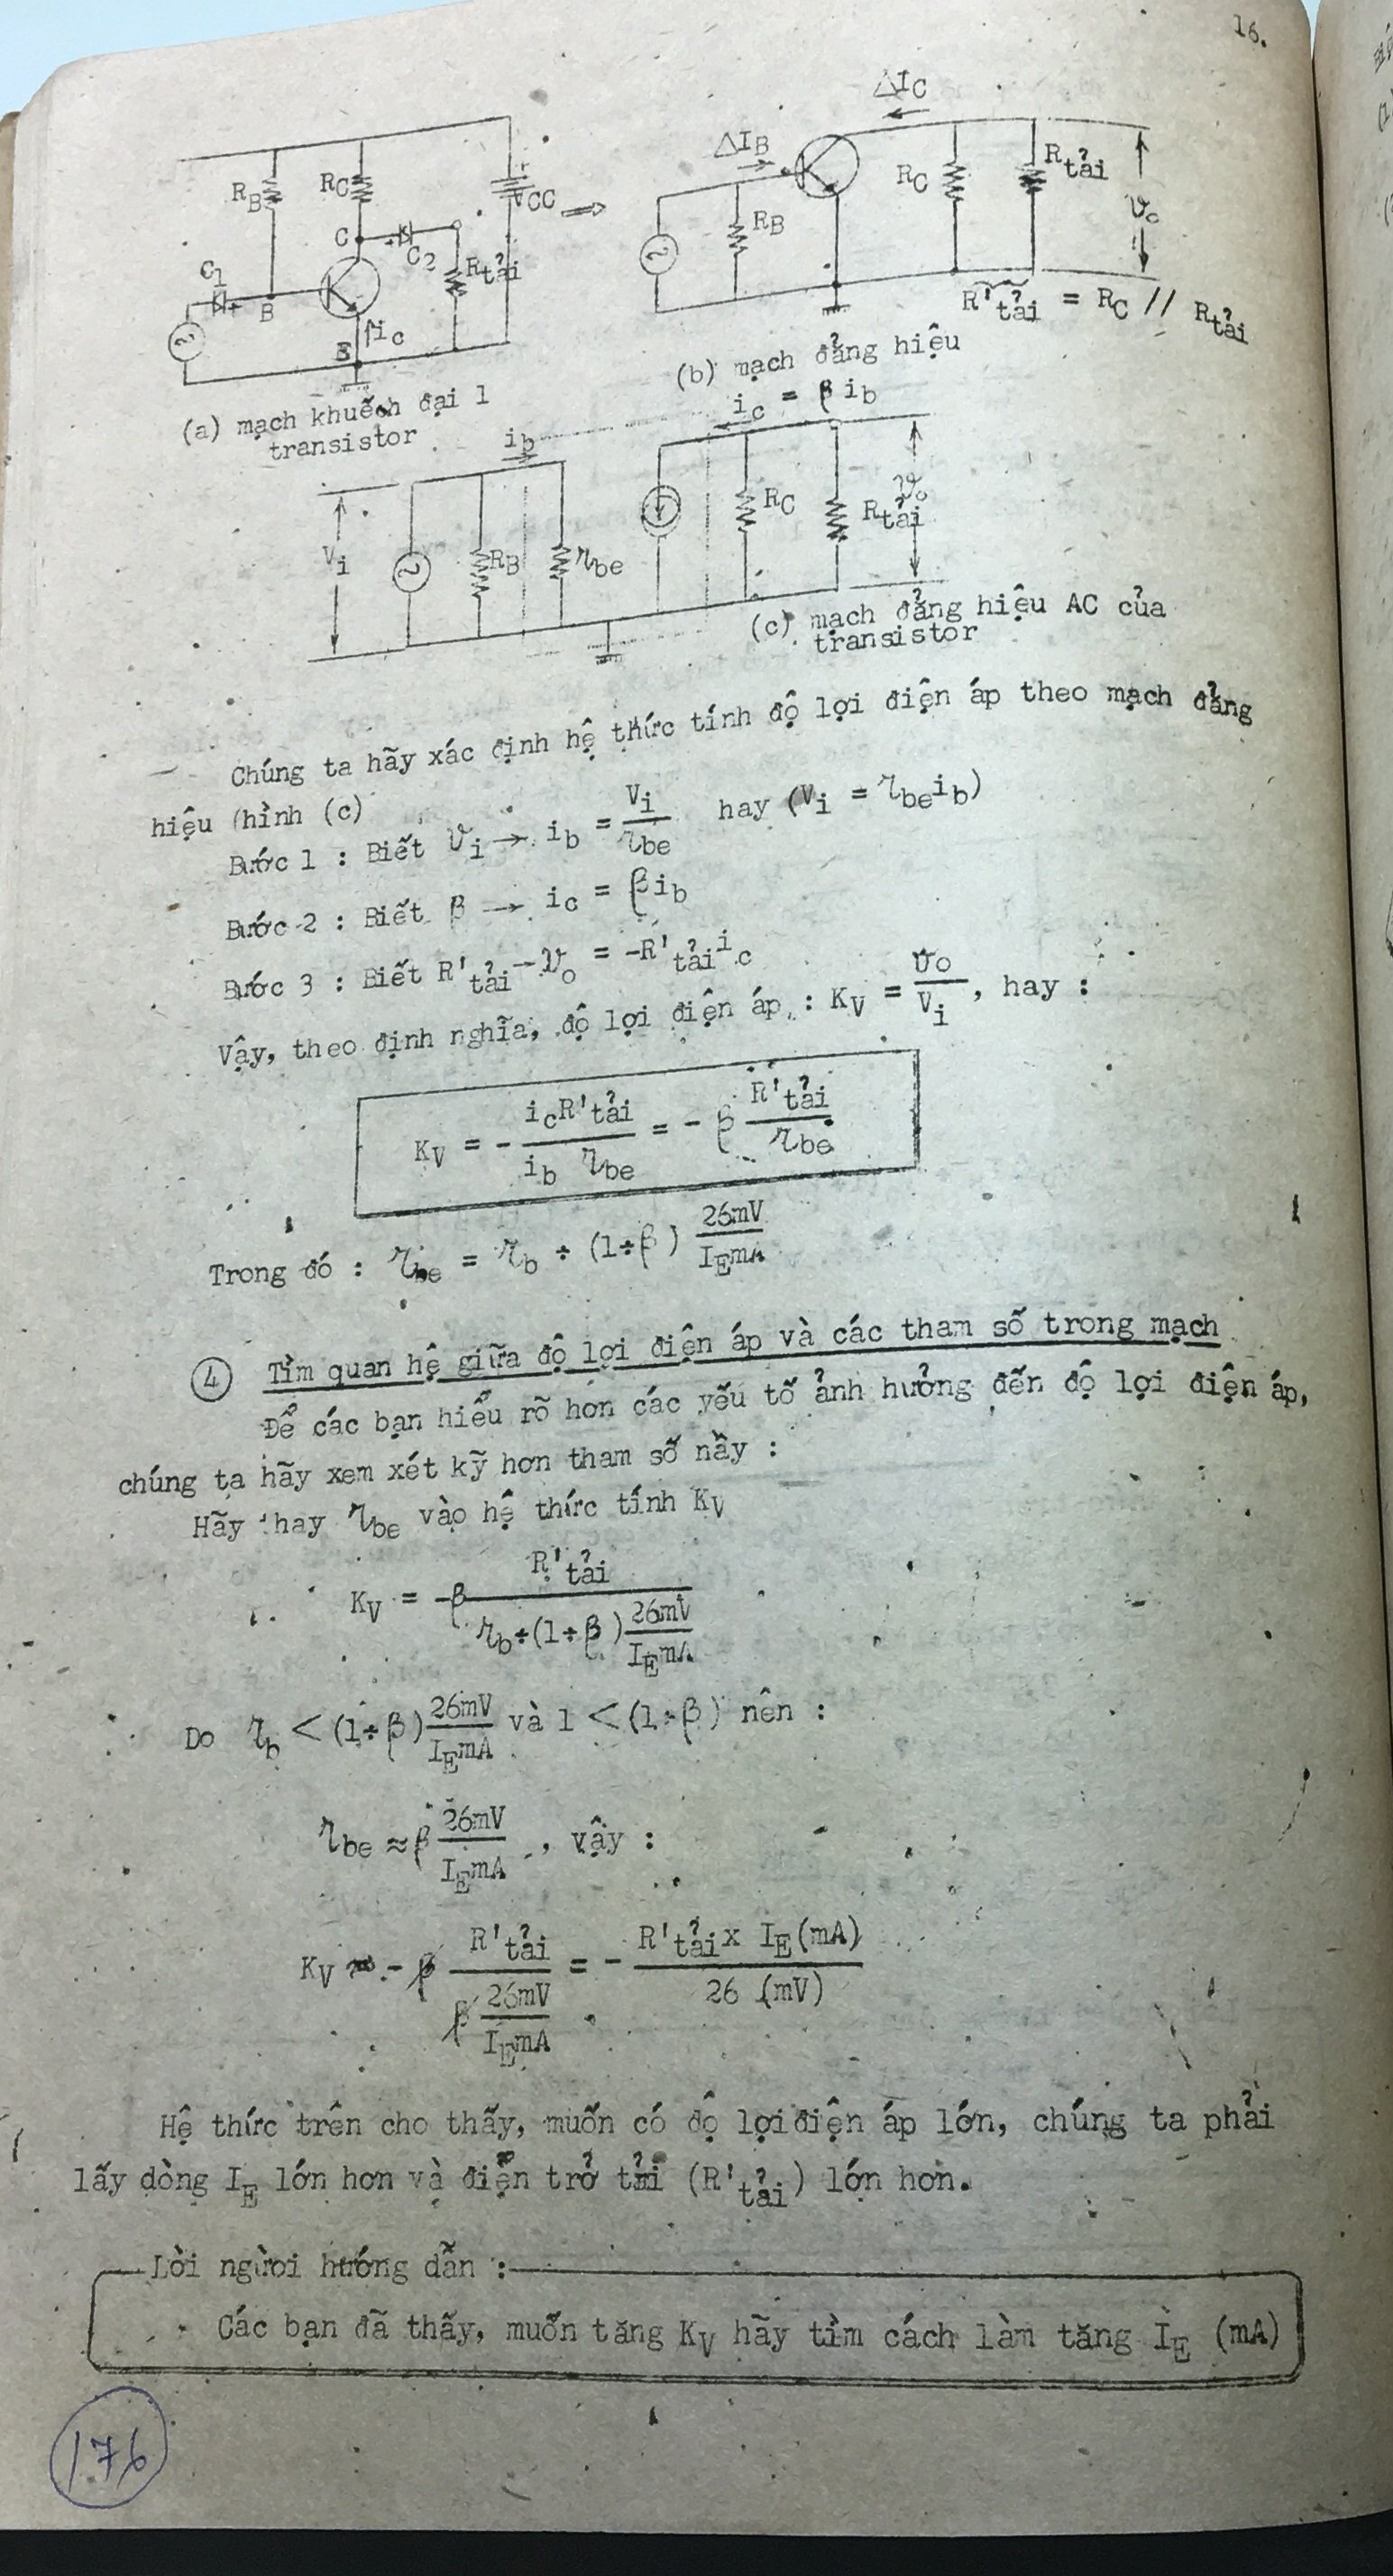 16.
ΔIC
ΔIB
RB
RC
VCC
C
C2
Rtải
C1
B
E
ic
RB
RC
Rtải
vo
R'tải = RC // Rtải
(a) mạch khuếch đại 1
transistor
(b) mạch đẳng hiệu
ic = β ib
ib
Vi
RB
rbe
RC
Rtải
vo
(c) mạch đẳng hiệu AC của
transistor
Chúng ta hãy xác định hệ thức tính độ lợi điện áp theo mạch đẳng
hiệu (hình (c)
Bước 1 : Biết vi → ib = Vi / rbe hay (Vi = rbe ib)
Bước 2 : Biết β → ic = β ib
Bước 3 : Biết R'tải - vo = -R'tải ic
Vậy, theo định nghĩa, độ lợi điện áp : KV = vo / Vi , hay :
KV = - icR'tải / ib rbe = - β R'tải / rbe
Trong đó : rbe = rb ÷ (1÷β) 26mV / IEmA
4 Tìm quan hệ giữa độ lợi điện áp và các tham số trong mạch
Để các bạn hiểu rõ hơn các yếu tố ảnh hưởng đến độ lợi điện áp,
chúng ta hãy xem xét kỹ hơn tham số nầy :
Hãy thay rbe vào hệ thức tính KV
KV = -β R'tải / rb÷(1÷β) 26mV / IEmA
Do rb < (1÷β) 26mV / IEmA và 1 < (1÷β) nên :
rbe ≈ β 26mV / IEmA , vậy :
KV ≈ - β R'tải / β 26mV / IEmA = - R'tải x IE(mA) / 26 (mV)
Hệ thức trên cho thấy, muốn có độ lợi điện áp lớn, chúng ta phải
lấy dòng IE lớn hơn và điện trở tải (R'tải) lớn hơn.
Lời người hướng dẫn :
Các bạn đã thấy, muốn tăng KV hãy tìm cách làm tăng IE (mA)
176